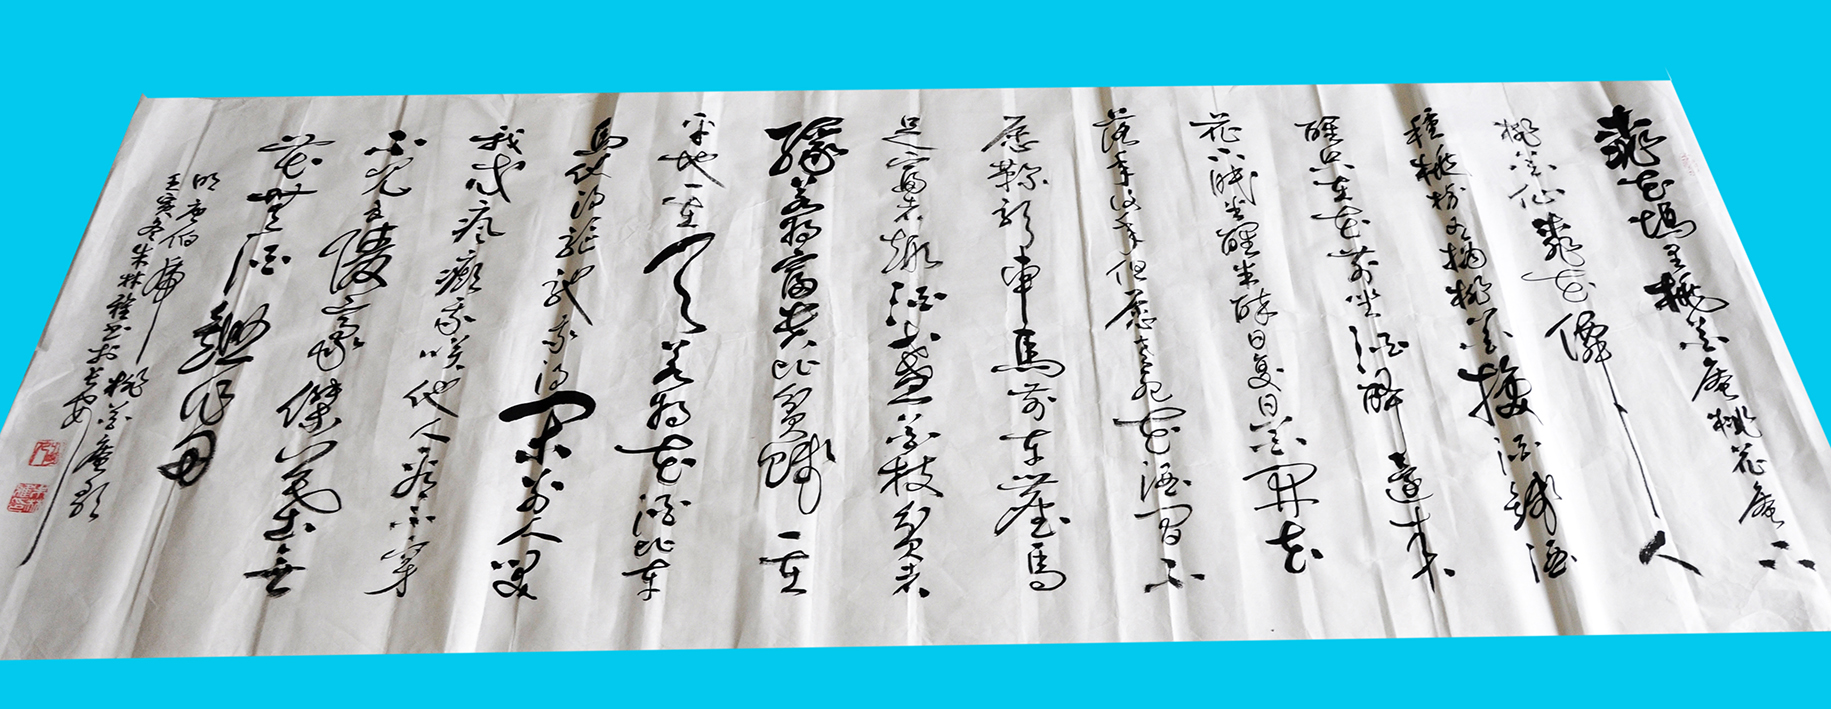 桃花塢里桃花庵桃花庵下
桃花仙桃花僊人
種桃樹又摘桃花換酒錢酒
醒只在花前坐酒醉還来
花下眠半醒半醉日復日花開花
落年復年但愿老死花酒間不
愿鞠躬車馬前車塵馬
足富者趣酒盞花枝貧者
緣若將富貴比貧賤一在
平地一在天若將花酒比車
馬他得驅馳我得閑別人笑
我忒瘋癲我咲他人看不穿
不見五陵豪傑墓無
花無酒鋤作田
明唐伯虎桃花庵歌
壬寅冬朱林雅书於长安